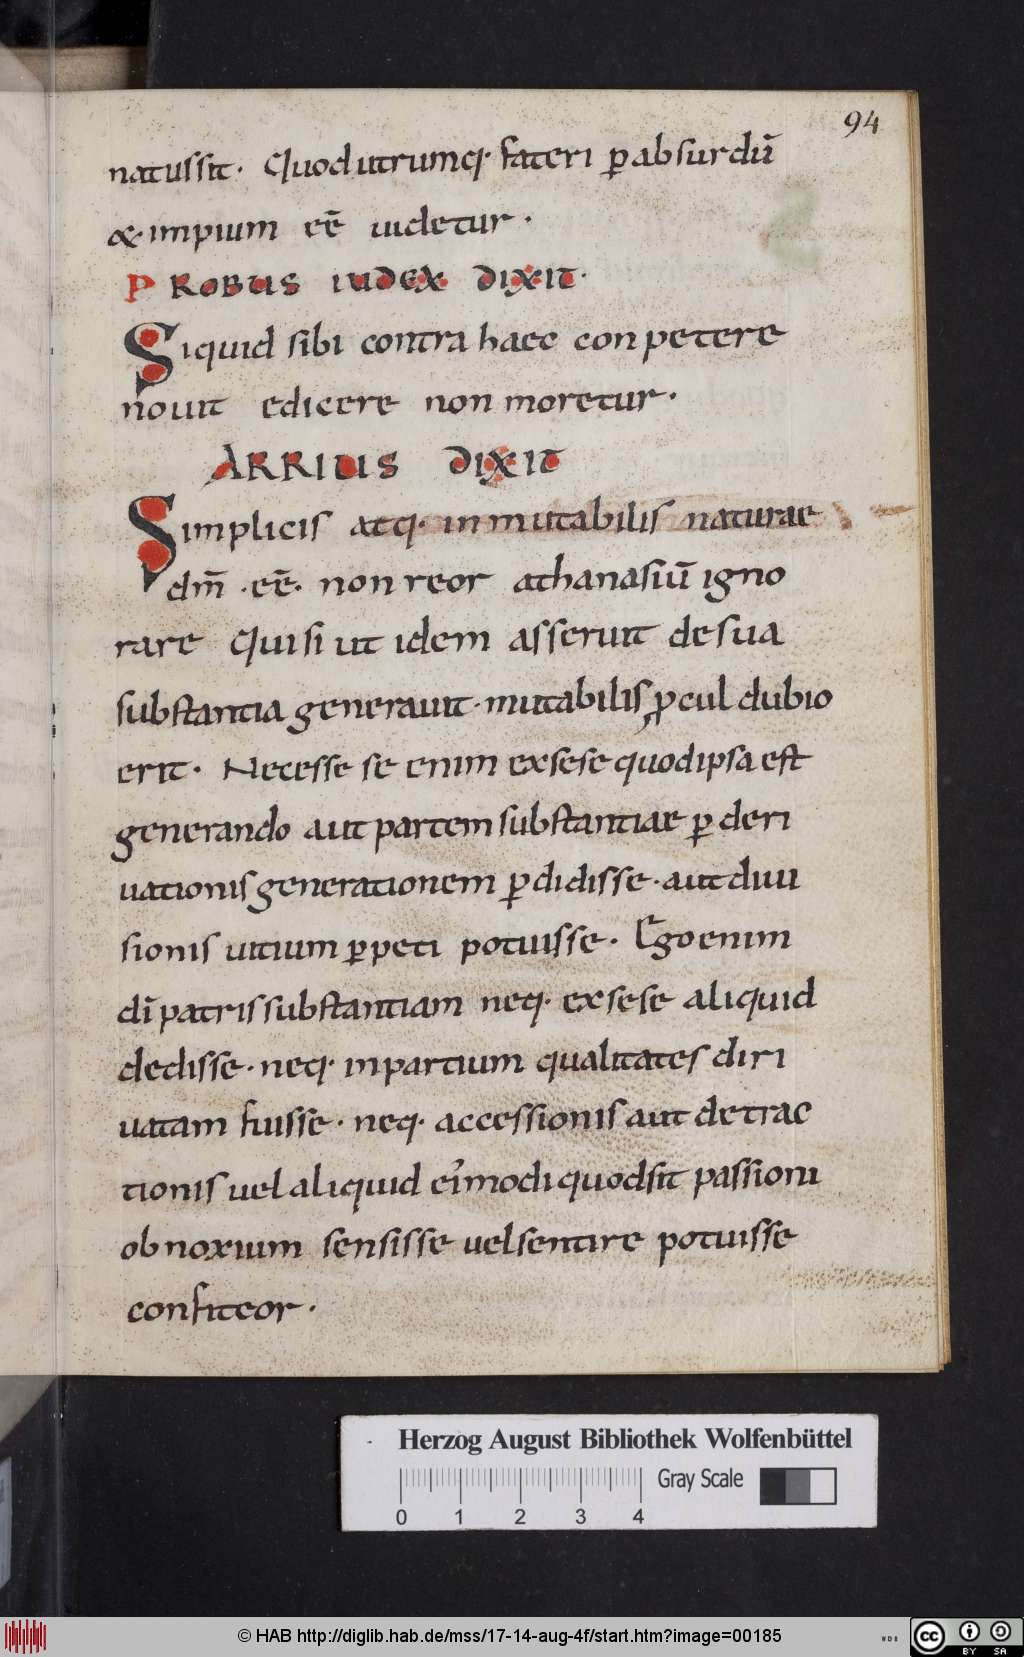 94
natussit· Quod utrumq· fateri ꝑabsurdū
&·impium eē uidetur·
PROBUS IUDEX DIXIT·
Siquid sibi contra haec conpetere
nouit edicere non moretur·
ARRIUS DIXIT
Simplicis atq· inmutabilis naturae
dm̄ ·eē· non reor athanasiū igno
rare Qui si ut idem asseruit de sua
substantia generauit·mutabilis ꝓcul dubio
erit· Necesse se enim exsese quod ipsa est
generando aut partem substantiae ꝑ deri
uationis generationem ꝑdidisse·aut diui
sionis uitium ꝑpeti potuisse· Ego enim
dī patris substantiam neq· exsese aliquid
dedisse·neq· in partium qualitates diri
uatam fuisse· neq· accessionis aut detrac
tionis uel aliquid ei᾿modi quodsit passioni
obnoxium sensisse uel sentire potuisse
confiteor·
Herzog August Bibliothek Wolfenbüttel
Gray Scale
0 1 2 3 4
© HAB http://diglib.hab.de/mss/17-14-aug-4f/start.htm?image=00185
WDB
cc BY SA